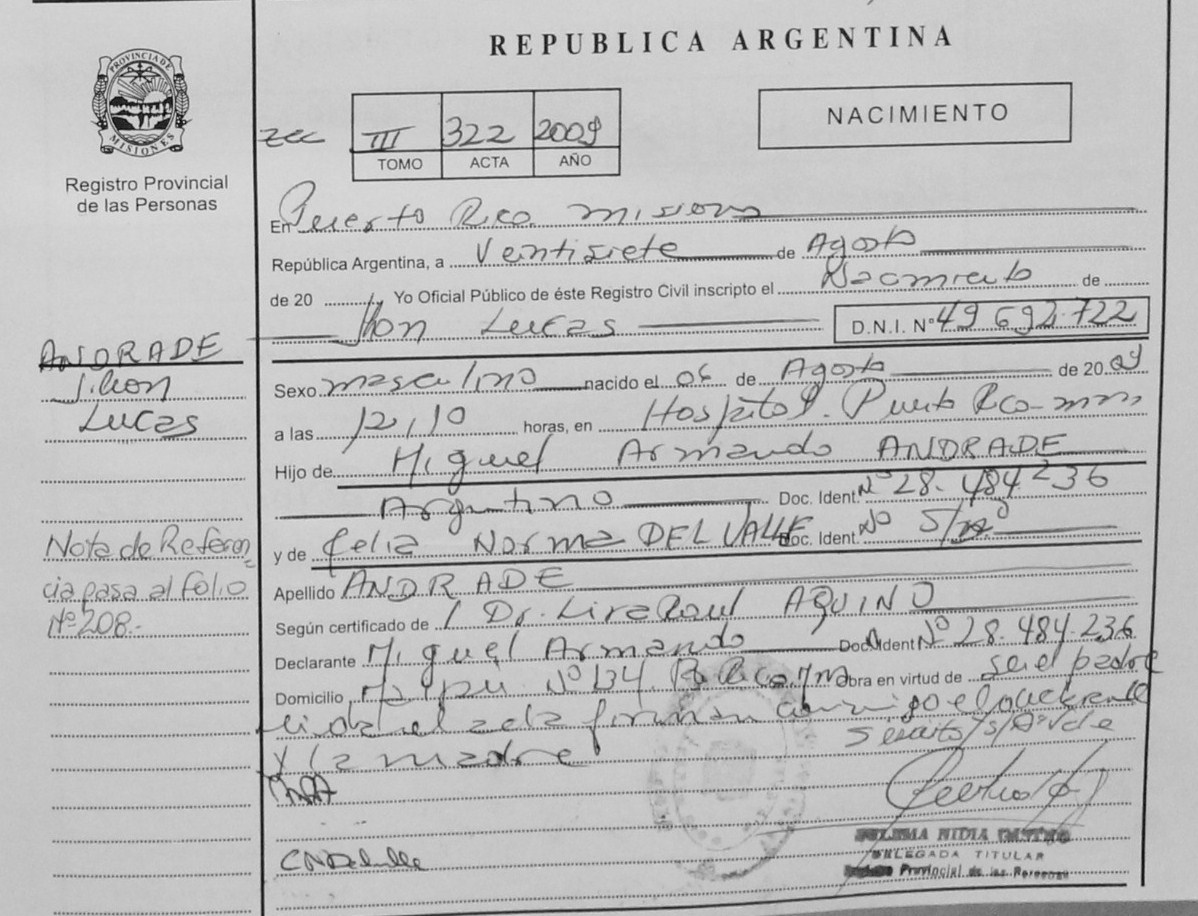 REPUBLICA ARGENTINA
PROVINCIA DE MISIONES
Registro Provincial
de las Personas
NACIMIENTO
III 322 2009
TOMO ACTA AÑO
En Puerto Rico Misiones
República Argentina, a Veintisiete de Agosto
de 20 Yo Oficial Público de éste Registro Civil inscripto el Nacimiento de
Jhon Lucas D.N.I. Nº 49 692 722
ANDRADE
Jhon
Lucas
Sexo masculino nacido el 06 de Agosto de 2009
a las 12,10 horas, en Hospital Puerto Rico
Hijo de Miguel Armando ANDRADE
Argentino Doc. Ident. Nº 28.484.236
y de Celia Norma DEL VALLE Doc. Ident. Nº
Apellido ANDRADE
Según certificado de Dr. AQUINO
Declarante Miguel Armando Doc. Ident Nº 28.484.236
Domicilio Maipu Nº Obra en virtud de ser el padre
el acta firman conmigo el
y la madre
Nota de Referen
cia pasa al folio
Nº 208.-
DELEGADA TITULAR
Registro Provincial de las Personas